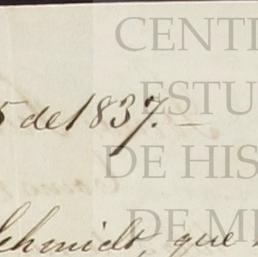 CENT
ESTU
5 de 1837.
DE HIS
Schmidt, que
DE M